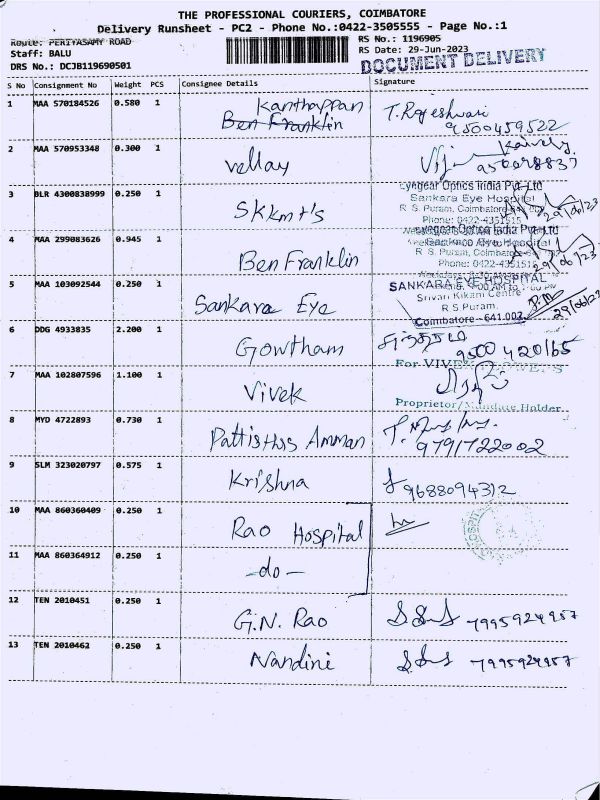 THE PROFESSIONAL COURIERS, COIMBATORE
Delivery Runsheet - PC2 - Phone No.:0422-3505555 - Page No.:1
Route: PERIYASAMY ROAD
RS No.: 1196905
Staff: BALU
RS Date: 29-Jun-2023
DRS No.: DCJB119690501
DOCUMENT DELIVERY
S No Consignment No Weight PCS Consignee Details Signature
1 MAA 570184526 0.580 1 Kanthappan T. Rajeshwari
Ben Franklin 9500459522
2 MAA 570953348 0.300 1 vellay
3 BLR 4300838999 0.250 1 SKKmt's
Optics India Pvt Ltd
Sankara Eye Hospital
R S. Puram, Coimbatore
Phone: 0422-4351515
29/06/23
4 MAA 299083626 0.945 1 Ben Franklin
Optics India Pvt Ltd
Sankara Eye Hospital
R S. Puram, Coimbatore
Phone: 0422-4351515
29/06/23
5 MAA 103092544 0.250 1 Sankara Eye
SANKARA EYE HOSPITAL
Srivari Kikani Centre
R S Puram,
Coimbatore - 641 002.
29/06/23
6 DDG 4933835 2.200 1 Gowtham
9500420165
7 MAA 102807596 1.100 1 Vivek
For VIVEK
Proprietor/Mandate Holder
8 MYD 4722893 0.730 1 Amman
9791722002
9 SLM 323020797 0.575 1 Krishna 9688094312
10 MAA 860360409 0.250 1 Rao Hospital
11 MAA 860364912 0.250 1 -do-
12 TEN 2010451 0.250 1 G.N. Rao 7995924957
13 TEN 2010462 0.250 1 Nandini 7995924957